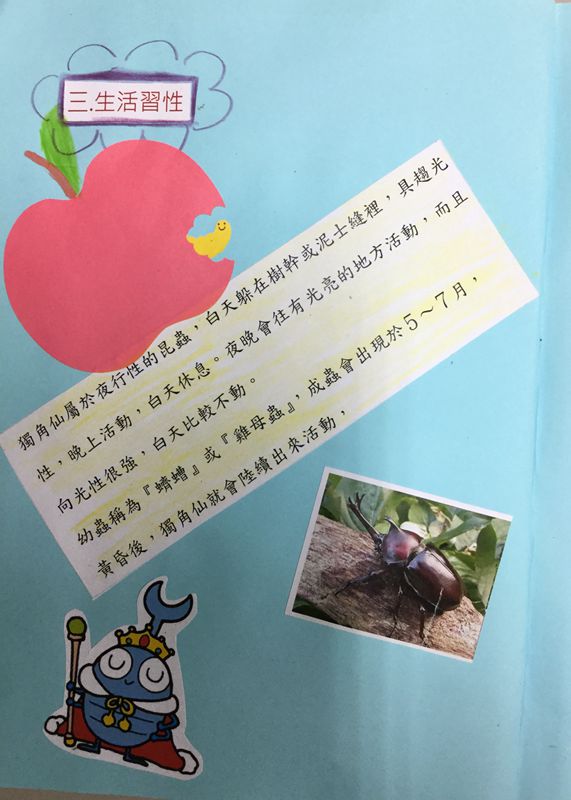 三.生活習性
獨角仙屬於夜行性的昆蟲,白天躲在樹幹或泥土縫裡,具趨光
性,晚上活動,白天休息。夜晚會往有光亮的地方活動,而且
向光性很強,白天比較不動。
幼蟲稱為『蠐螬』或『雞母蟲』,成蟲會出現於5~7月,
黃昏後,獨角仙就會陸續出來活動,